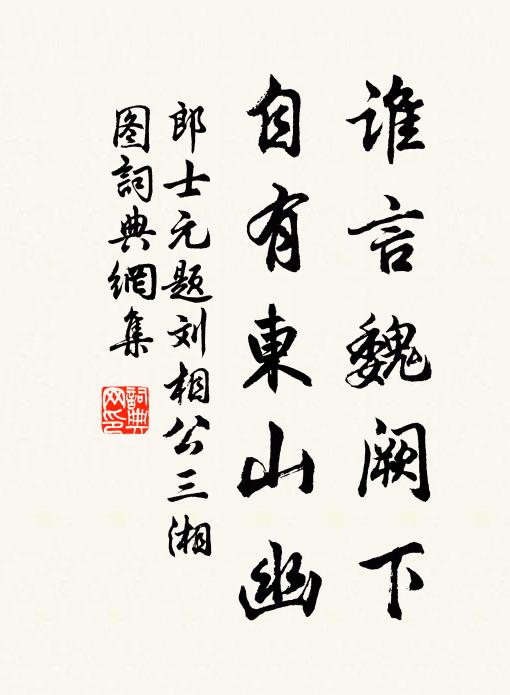 谁言魏阙下
自有東山幽
郎士元题刘相公三湘
图詞典網集
詞典网印